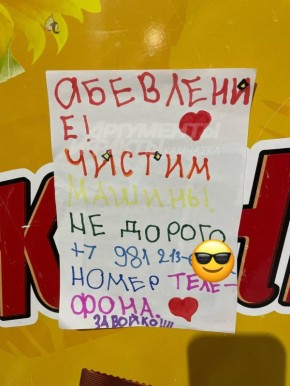 АБЕВЛЕНИ
Е!
ЧИСТИМ
МАШИНЫ!
НЕ ДОРОГО
+7 981 213-
НОМЕР ТЕЛЕ-
ФОНА.
ЗАВОЙКО!!!!
АРГУМЕНТЫ